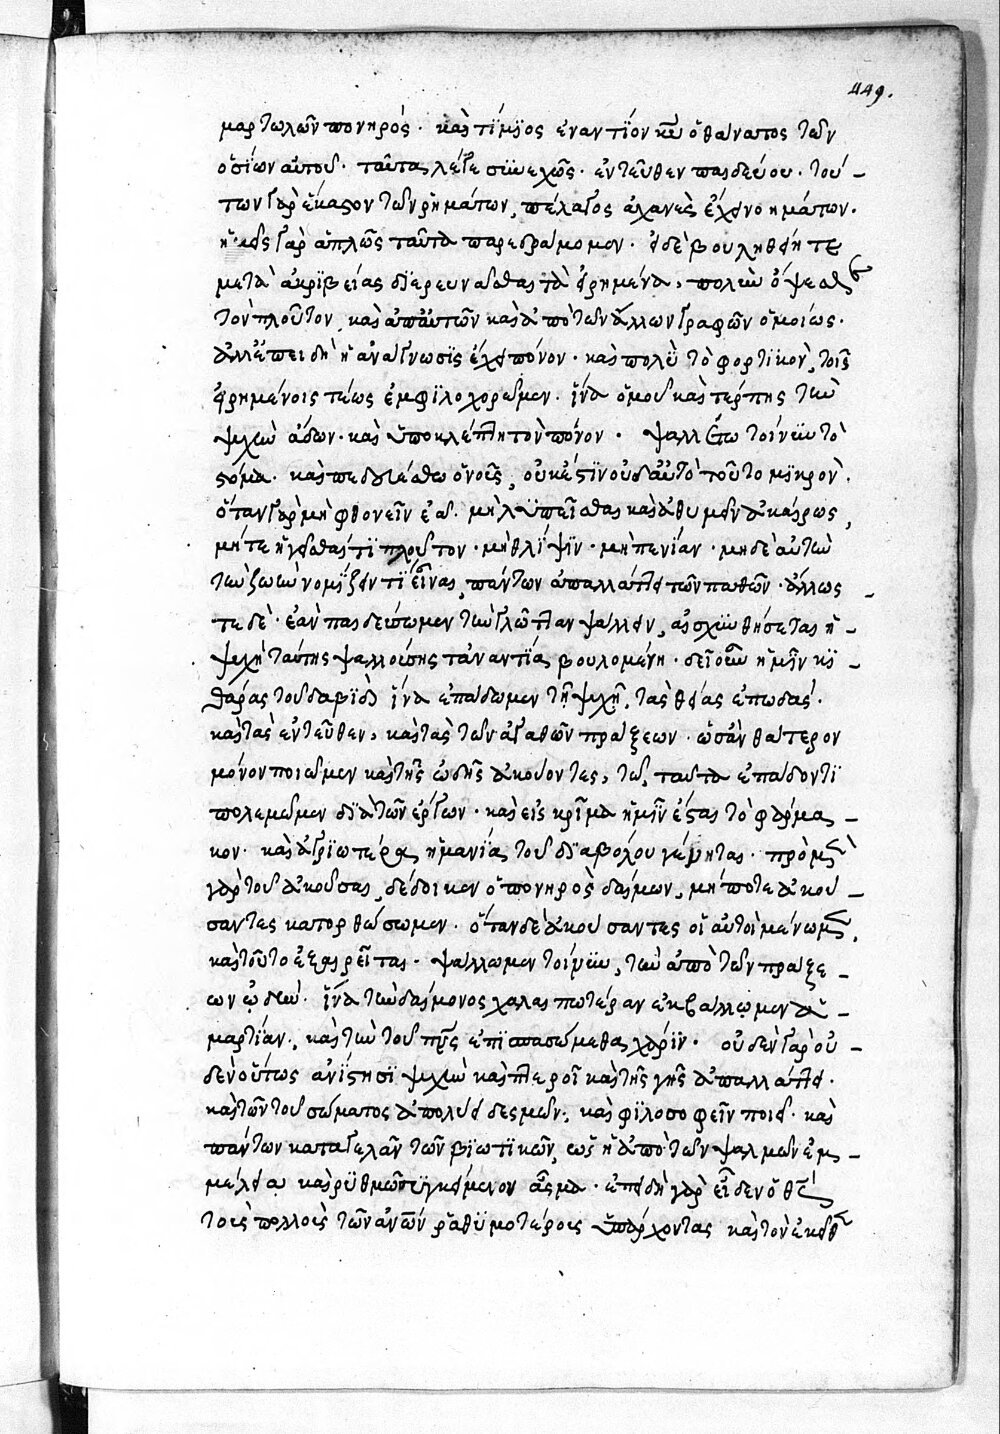 449.
μαρτωλῶν πονηρός· καὶ τίμϊος ἐναντίον κῡ ὁ θάνατος τῶν
ὁσίων αὐτοῦ· ταῦτα λέγε συνεχῶς· ἐντεῦθεν παιδεύου· τού-
των γὰρ ἕκαστον τῶν ῥημάτων, πέλαγος ἀχανὲς ἔχει νοημάτων·
ἡμεῖς γὰρ ἁπλῶς ταῦτα παρεδράμομεν· εἰ δὲ βουληθείητε
μετὰ ἀκρϊβείας διερευνᾶσθαι τὰ εἰρημένα, πολὺν ὄψεσθε
τὸν πλοῦτον, καὶ ἀπ αὐτῶν καὶ ἀπὸ τῶν ἄλλων γραφῶν ὁμοίως·
ἀλλ ἐπειδὴ ἡ ἀνάγνωσϊς ἔχει πόνον· καὶ πολὺ τὸ φορτϊκὸν, τοῖς
εἰρημένοις τέως ἐμφϊλοχορῶμεν· ἵνα ὁμοῦ καὶ τέρπης τὴν
ψυχὴν ἄδων· καὶ ὑποκλέπτη τὸν πόνον· ψαλλέτω τοίνυν τὸ
στόμα· καὶ παιδευέσθω ὁ νοῦς, οὐκ ἔστϊν οὐδ αὐτὸ τοῦτο μϊκρὸν·
ὅταν γὰρ μὴ φθονεῖν ἐᾶ· μὴ λϋπεῖσθαι καὶ ἀθυμεῖν ἀκαίρως,
μήτε ἡγεῖσθαι τϊ πλοῦτον· μὴ θλίψϊν· μὴ πενίαν· μηδὲ αὐτὴν
τὴν ζωὴν νομϊζειν τϊ εἶναι, πάντων ἀπαλλάττει τῶν παθῶν· ἄλλως
τε δὲ· ἐὰν παιδεύσωμεν τὴν γλῶτταν ψάλλειν, αἰσχυνθήσεται ἡ
ψυχὴ ταύτης ψαλλούσης τἀναντία βουλομένη· δεῖ οὖν ἡμῖν κϊ-
θάρας τοῦ δαβϊδ ἵνα ἐπάδωμεν τῆ ψυχῆ, τὰς θείας ἐπωδάς·
καὶ τὰς ἐντεῦθεν, καὶ τὰς τῶν ἀγαθῶν πράξεων· ὡς ἂν θάτερον
μόνον ποιῶμεν καὶ τῆς ὠδῆς ἀκούοντες, τῶ ταῦτα ἐπάδοντϊ
πολεμῶμεν διὰ τῶν ἔργων· καὶ εἰς κρῖμα ἡμῖν ἔσται τὸ φάρμα-
κον· καὶ ἀγριωτέρα ἡ μανία τοῦ διαβόλου γένηται· πρὸ μὲν
γὰρ τοῦ ἀκοῦσαι, δέδοικεν ὁ πονηρὸς δαίμων, μήποτε ἀκού-
σαντες κατορθώσωμεν· ὅταν δὲ ἀκούσαντες οἱ αὐτοὶ μένωμεν,
καὶ τοῦτο ἐξαιρεῖται· ψάλλωμεν τοίνυν, τὴν ἀπὸ τῶν πράξε-
ων ὠδὴν· ἵνα τὴν δαίμονος χαλεπωτέραν ἐκβάλλωμεν ἁ-
μαρτίαν, καὶ τὴν τοῦ πνς ἐπϊσπασώμεθα χάρϊν· οὐδὲν γὰρ οὐ-
δὲν οὕτως ἀνίστησϊ ψυχὴν καὶ πτεροῖ καὶ τῆς γῆς ἀπαλλάττει·
καὶ τῶν τοῦ σώματος ἀπολύει δεσμῶν, καὶ φϊλοσοφεῖν ποιεῖ· καὶ
πάντων καταγελᾶν τῶν βϊωτϊκῶν, ὡς ἡ ἀπὸ τῶν ψαλμῶν ἐμ-
μέλεια καὶ ῥϋθμῶ συγκείμενον ᾆσμα· ἐπειδὴ γὰρ εἶδεν ὁ θς
τοὺς πολλοὺς τῶν ἀνῶν ῥαθϋμοτέρους ὑπάρχοντας καὶ τὸν ἐκ